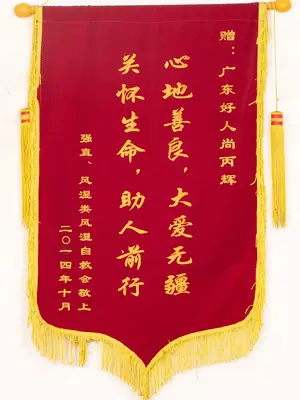 赠：广东好人尚丙辉
心地善良，大爱无疆
关怀生命，助人前行
强直、风湿类风湿自救会敬上
二〇一四年十月